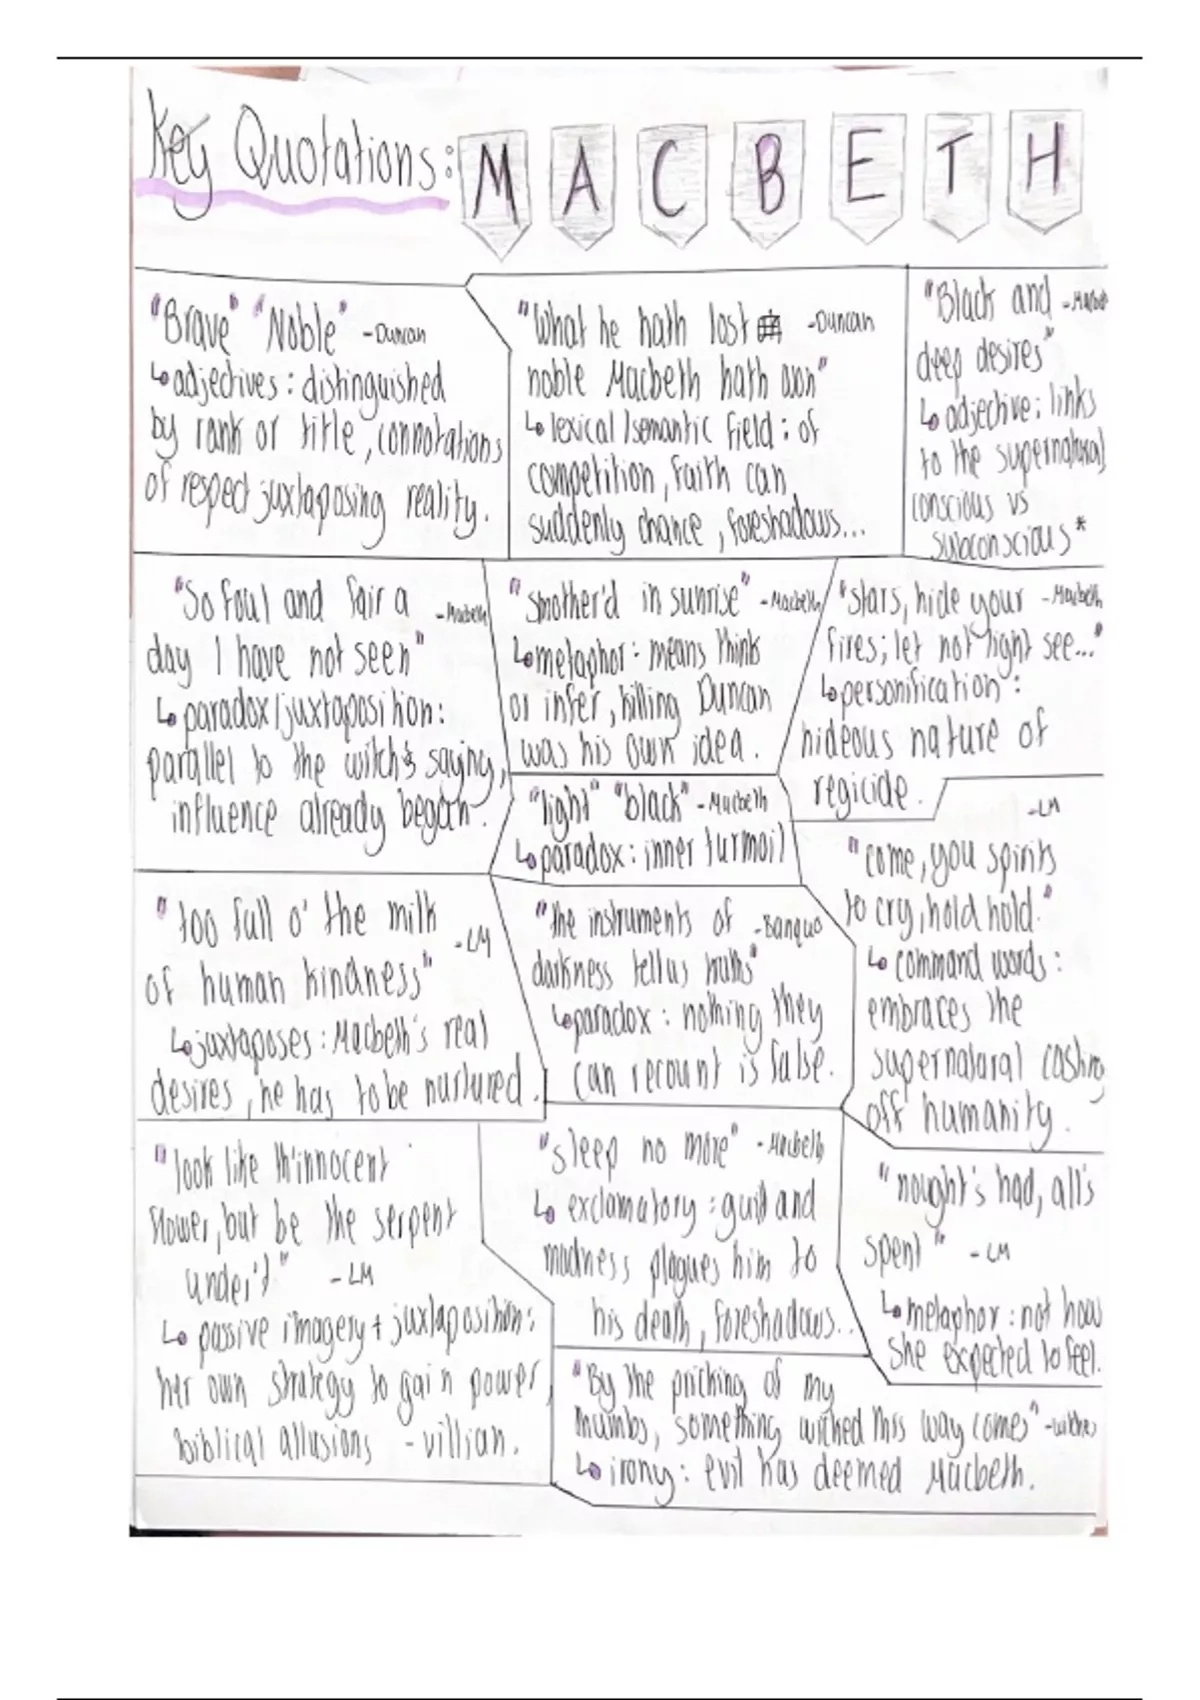 Key Quotations: MACBETH
"Brave" "Noble" -Duncan
↳adjectives: distinguished
by rank or title, connotations
of respect juxtaposing reality.
"What he hath lost -Duncan
noble Macbeth hath won"
↳lexical/semantic field: of
competition, faith can
suddenly change, foreshadows...
"Black and -Macbeth
deep desires"
↳adjective: links
to the supernatural
conscious vs
subconscious*
"So foul and fair a -Macbeth
day I have not seen"
↳paradox/juxtaposition:
parallel to the witch's saying,
influence already began.
"smother'd in surmise" -Macbeth
↳metaphor: means think
or infer, killing Duncan
was his own idea.
"stars, hide your -Macbeth
fires; let not light see..."
↳personification:
hideous nature of
regicide.
"light" "black" -Macbeth
↳paradox: inner turmoil
-LM
"come, you spirits
to cry, hold hold."
↳command words:
embraces the
supernatural casting
off humanity.
"too full o' the milk
-LM
of human kindness"
↳juxtaposes: Macbeth's real
desires, he has to be nurtured.
"the instruments of -Banquo
darkness tell us truths"
↳paradox: nothing they
can recount is false.
"look like th'innocent
flower, but be the serpent
under't" -LM
↳passive imagery + juxtaposition:
her own strategy to gain power,
biblical allusions -villian.
"sleep no more" -Macbeth
↳exclamatory: guilt and
madness plagues him to
his death, foreshadows...
"nought's had, all's
spent" -LM
↳metaphor: not how
she expected to feel.
"By the pricking of my
thumbs, something wicked this way comes" -witches
↳irony: evil has deemed Macbeth.